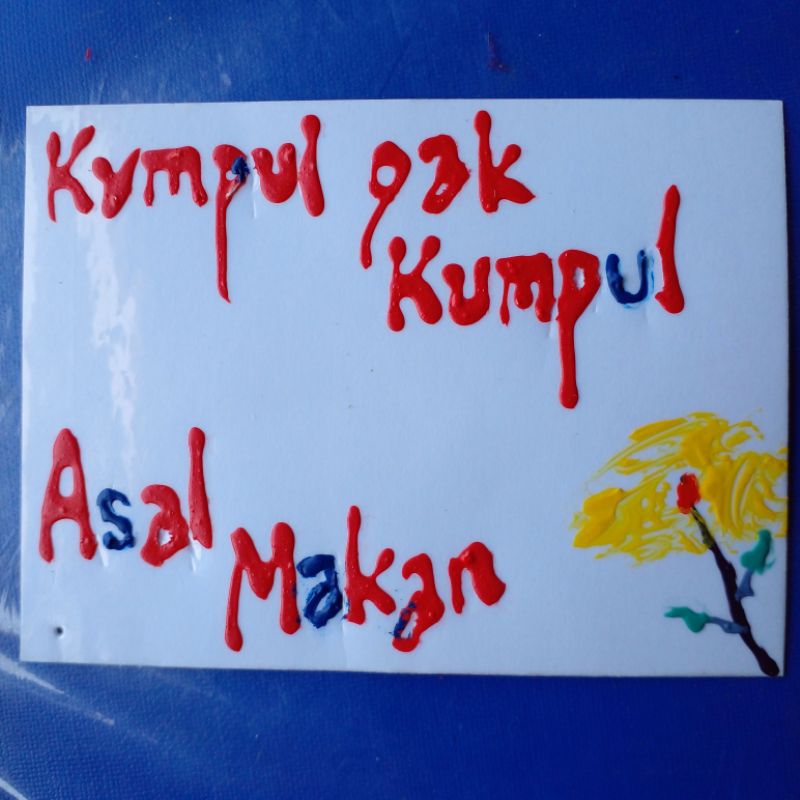 Kumpul gak
Kumpul
Asal
Makan